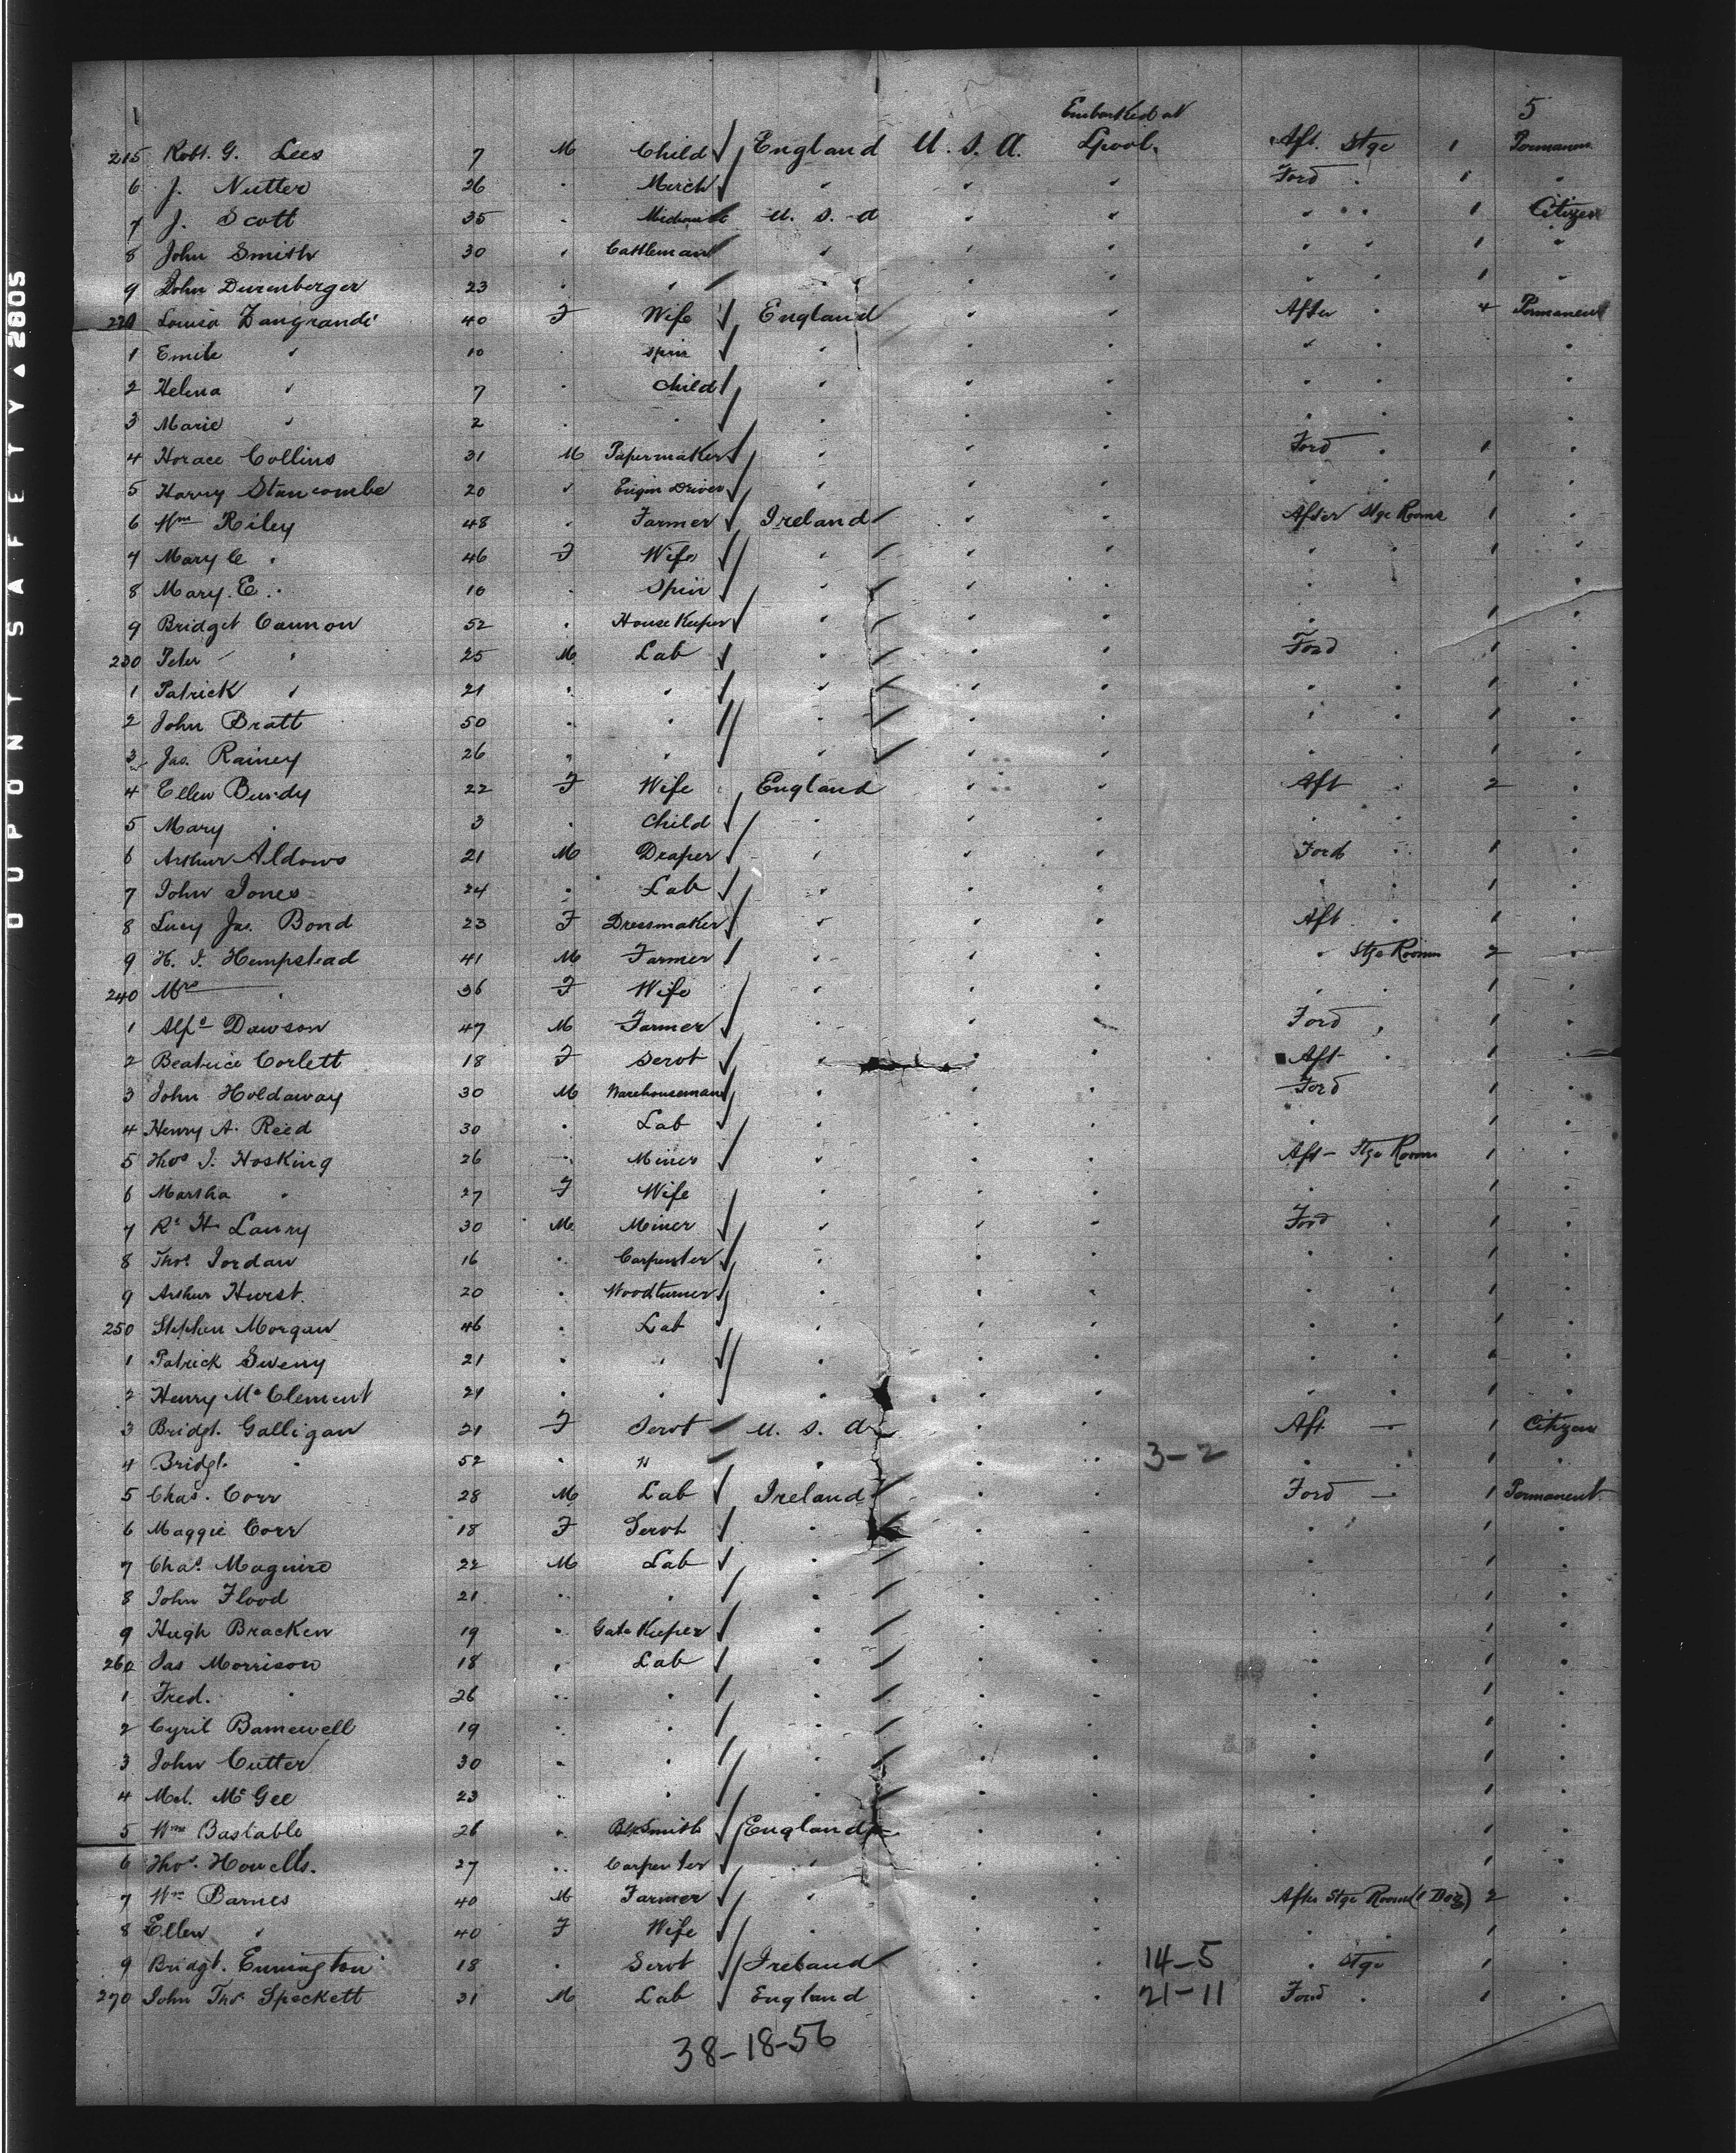 5
Embarked at
215 Robt. G. Lees 7 M Child England U. S. A. Lpool. Aft. Stge 1
6 J. Nutter 26 " Merch " " " Ford " 1 "
7 J. Scott 35 " U. S. A " " " " 1 Citizen
8 John Smith 30 " Cattleman " " " " " 1 "
9 John Durenberger 23 " " " " " " " 1 "
220 Louisa Zangrandi 40 F Wife England " " After " 4 Permanent
1 Emile " 10 " Spin " " " " " "
2 Helena " 7 " Child " " " " " "
3 Marie " 2 " " " " " " " "
4 Horace Collins 31 M Papermaker " " " Ford " 1 "
5 Harry Stancombe 20 " Engin Driver " " " " " 1 "
6 Wm Riley 48 " Farmer Ireland " " After Stge Rooms 1 "
7 Mary C " 46 F Wife " " " " " 1 "
8 Mary. E. " 10 " Spin " " " " "
9 Bridget Cannon 52 " House Keeper " " " " 1 "
230 Peter " 25 M Lab " " " Ford " 1 "
1 Patrick " 21 " " " " " " " 1 "
2 John Bratt 50 " " " " " " " 1 "
3 Jas. Rainey 26 " " " " " " " 1 "
4 Ellen Burdy 22 F Wife England " " Aft " 2 "
5 Mary " 3 " Child " " " " " "
6 Arthur Aldows 21 M Draper " " " Ford " 1 "
7 John Jones 24 " Lab " " " " " 1 "
8 Lucy Jas. Bond 23 F Dressmaker " " " Aft " 1 "
9 H. J. Hempstead 41 M Farmer " " " " Stge Rooms 2 "
240 Mrs " 36 F Wife " " " " " 1 "
1 Alfd Dawson 47 M Farmer " " " Ford " 1 "
2 Beatrice Corlett 18 F Servt " " " Aft " 1 "
3 John Holdaway 30 M Warehouseman " " " Ford 1 "
4 Henry A. Reed 30 " Lab " " " " 1 "
5 Thos J. Hosking 26 " Miner " " " Aft - Stge Room 1 "
6 Martha " 27 F Wife " " " " " 1 "
7 Rd H. Laury 30 M Miner " " " Ford " 1 "
8 Thos Jordan 16 " Carpenter " " " " " 1 "
9 Arthur Hurst. 20 " Woodturner " " " " " 1 "
250 Stephen Morgan 46 " Lab " " " " " 1 "
1 Patrick Sweny 21 " " " " " " " 1 "
2 Henry McClement 21 " " " " " " " 1 "
3 Bridgt. Galligan 21 F Servt U. S. A " " Aft - 1 Citizen
4 Bridgt. " 52 " " " " " 3-2 " " 1 "
5 Chas. Corr 28 M Lab Ireland " " Ford - 1 Permanent
6 Maggie Corr 18 F Servt " " " " " 1 "
7 Chas. Maguire 22 M Lab " " " " 1 "
8 John Flood 21 " " " " " " 1 "
9 Hugh Bracken 19 " Gate Keeper " " " " 1 "
260 Jas Morrison 18 " Lab " " " " 1 "
1 Fred. " 26 " " " " " " 1 "
2 Cyril Barnewell 19 " " " " " " 1 "
3 John Cutter 30 " " " " " " 1 "
4 Ml. McGee 23 " " " " " " 1 "
5 Wm Bastable 26 " Blksmith England " " " 1 "
6 Thos. Howells. 27 " Carpenter " " " " 1 "
7 Wm Barnes 40 M Farmer " " " After Stge Room (1 Dog) 2 "
8 Ellen " 40 F Wife " " " " " 1 "
9 Bridgt. Ennington 18 " Servt Ireland " " 14-5 " Stge 1 "
270 John Thos Speckett 31 M Lab England " " 21-11 Ford " 1 "
38-18-56
DUPONT SAFETY ▲ 2805